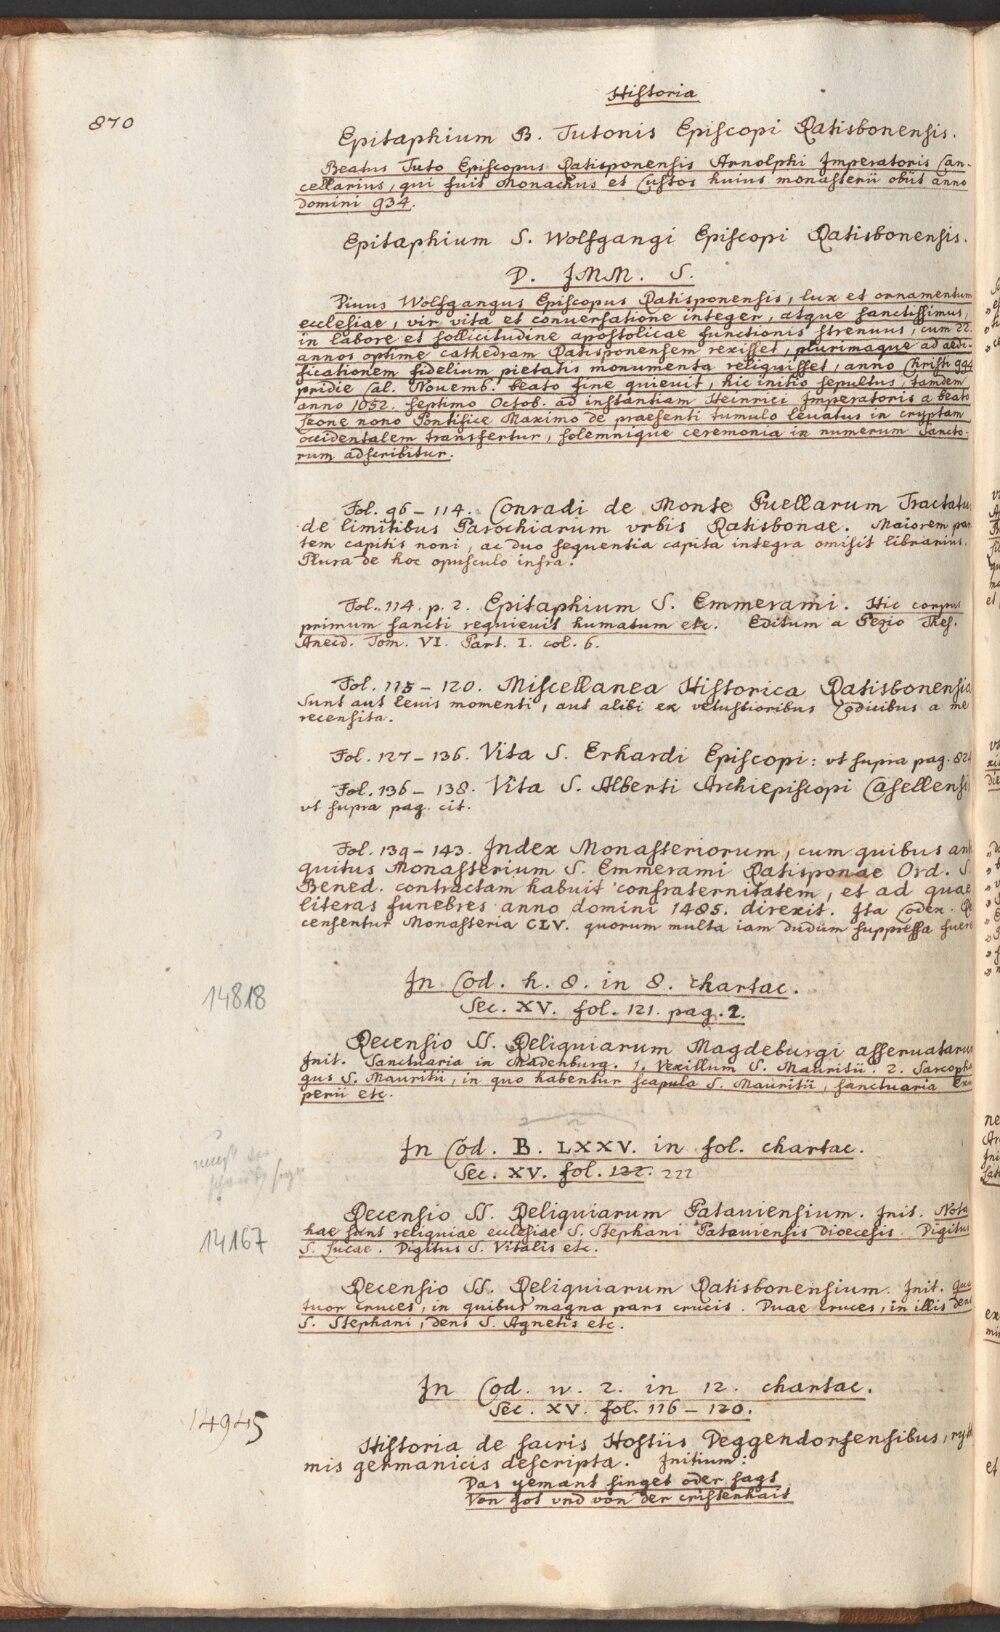 Historia
870
Epitaphium B. Tutonis Episcopi Ratisbonensis.
Beatus Tuto Episcopus Ratisponensis Arnolphi Imperatoris Can-
cellarius, qui fuit Monachus et Custos huius monasterii obiit anno
domini 934.
Epitaphium S. Wolfgangi Episcopi Ratisbonensis.
D. IMM. S.
Diuus Wolfgangus Episcopus Ratisponensis, lux et ornamentum
ecclesiae, vir vita et conuersatione integer, atque sanctissimus,
in labore et sollicitudine apostolicae functionis strenuus, cum 22.
annos optime cathedram Ratisponensem rexisset, plurimaque ad aedi-
ficationem fidelium pietatis monumenta reliquisset, anno Christi 994
pridie Cal. Nouemb. beato fine quieuit, hic initio sepultus, tamdem
anno 1052. septimo Octob. ad instantiam Heinrici Imperatoris a beato
Leone nono Pontifice Maximo de praesenti tumulo leuatus in cryptam
occidentalem transfertur, solemnique ceremonia in numerum Sancto-
rum adscribitur.
Fol. 96 – 114. Conradi de Monte Puellarum Tractatu
de limitibus Parochiarum vrbis Ratisbonae. Maiorem par
tem capitis noni, ac duo sequentia capita integra omisit librarius.
Plura de hoc opusculo infra.
Fol. 114. p. 2. Epitaphium S. Emmerami. Hic corpus
primum sancti requieuit humatum etc. Editum a Pezio Thes.
Anecd. Tom. VI. Part. I. col. 6.
Fol. 115 – 120. Miscellanea Historica Ratisbonensia
Sunt aut leuis momenti, aut alibi ex vetustioribus Codicibus a me
recensita.
Fol. 127 – 136. Vita S. Erhardi Episcopi: vt supra pag. 82
Fol. 136 – 138. Vita S. Alberti Archiepiscopi Casellensi
vt supra pag. cit.
Fol. 139 – 143. Index Monasteriorum, cum quibus an
quitus Monasterium S. Emmerami Ratisponae Ord. S.
Bened. contractam habuit confraternitatem, et ad quae
literas funebres anno domini 1485. direxit. Ita Codex. Re
censentur Monasteria CLV. quorum multa iam dudum suppressa fuer
In Cod. h. 8. in 8. chartac.
14818
Sec. XV. fol. 121. pag. 2.
Recensio SS. Reliquiarum Magdeburgi asseruatarum
Init. Sanctuaria in Madenburg. 1. Vexillum S. Mauritii. 2. Sarcopha
gus S. Mauritii, in quo habentur scapula S. Mauritii, sanctuaria Exu
perii etc.
In Cod. B. LXXV. in fol. chartac.
Sec. XV. fol. 122. 222
Recensio SS. Reliquiarum Patauiensium. Init. Nota
14167
hae sunt reliquiae ecclesiae S. Stephani Patauiensis Dioecesis. Digitus
S. Lucae. Digitus S. Vitalis etc.
Recensio SS. Reliquiarum Ratisbonensium. Init. Qua
tuor cruces, in quibus magna pars crucis. Duae cruces, in illis dens
S. Stephani, dens S. Agnetis etc.
In Cod. w. 2. in 12. chartac.
Sec. XV. fol. 116 – 120.
14945
Historia de sacris Hostiis Deggendorfensibus, ryth
mis germanicis descripta. Initium:
Das yemant singet oder sagt
Von got vnd von der cristenhait